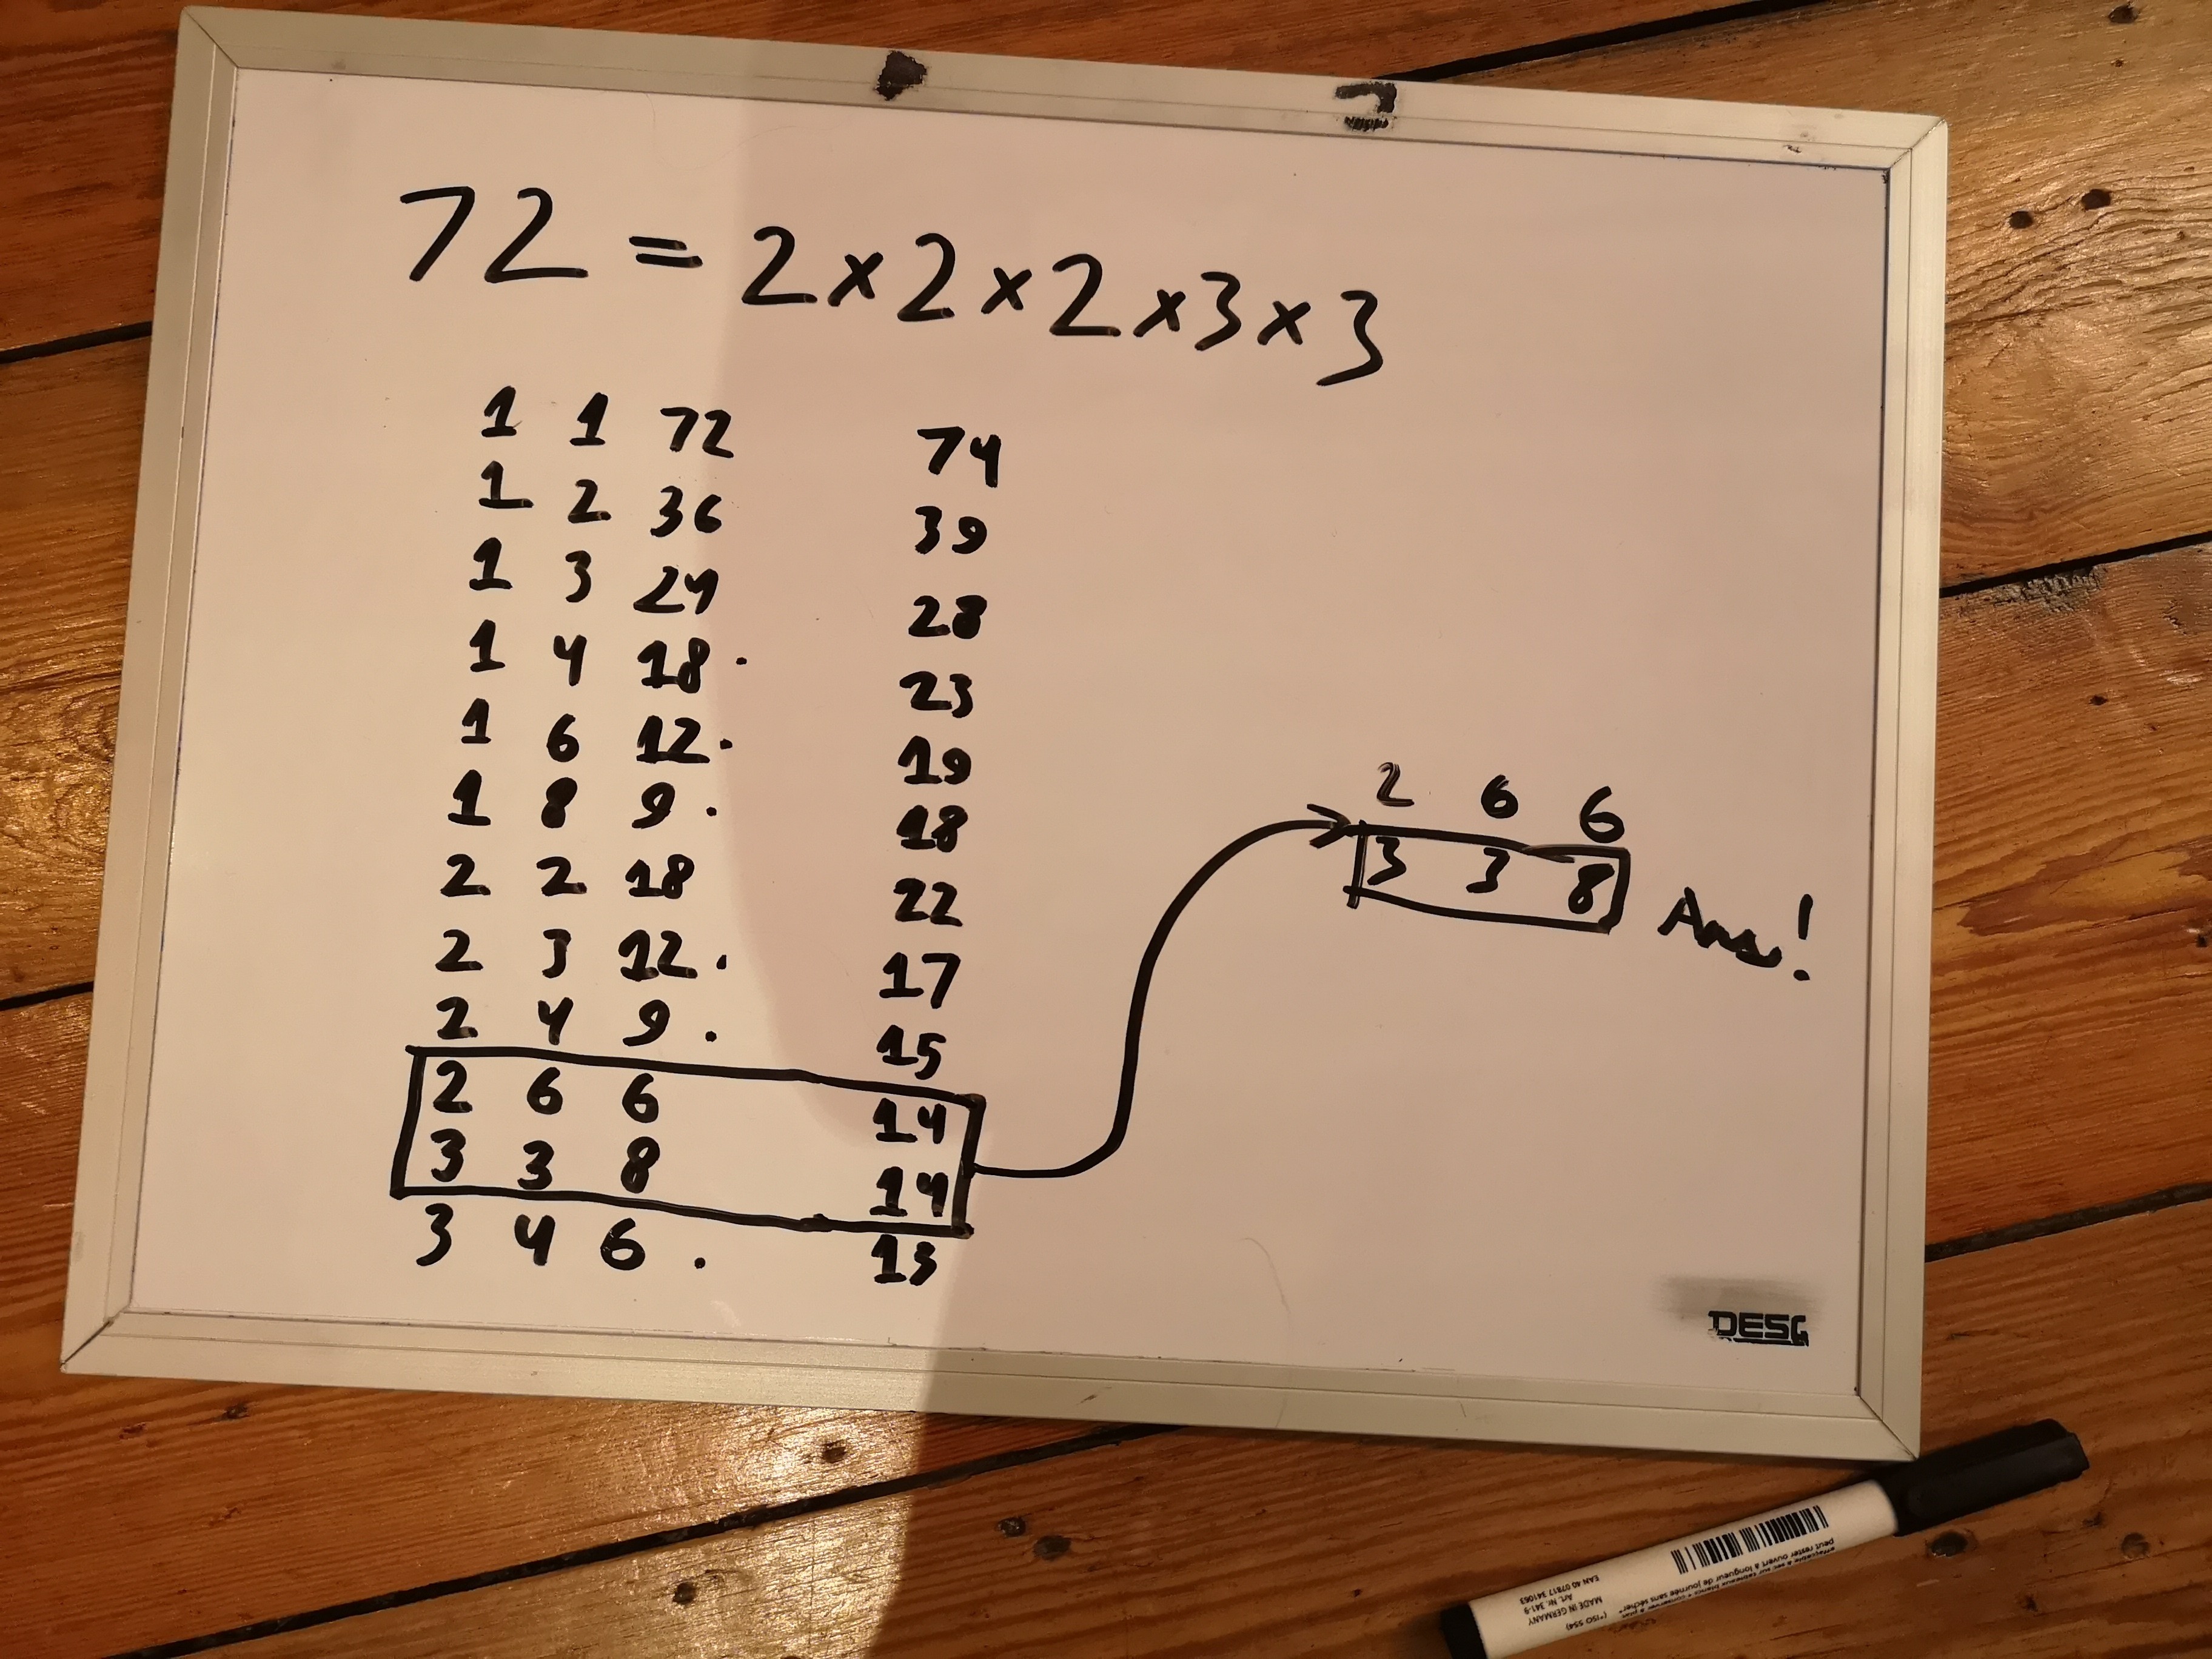 72 = 2 × 2 × 2 × 3 × 3
1 1 72 74
1 2 36 39
1 3 24 28
1 4 18 . 23
1 6 12 . 19
1 8 9 . 18
2 2 18 22
2 3 12 . 17
2 4 9 . 15
2 6 6 14
3 3 8 14
3 4 6 . 13
2 6 6
3 3 8 Ans!
peut rester ouvert à longueur de journée sans sécher*
(*ISO 554)
MADE IN GERMANY
Art. Nr. 341-9
EAN 40 07817 341063